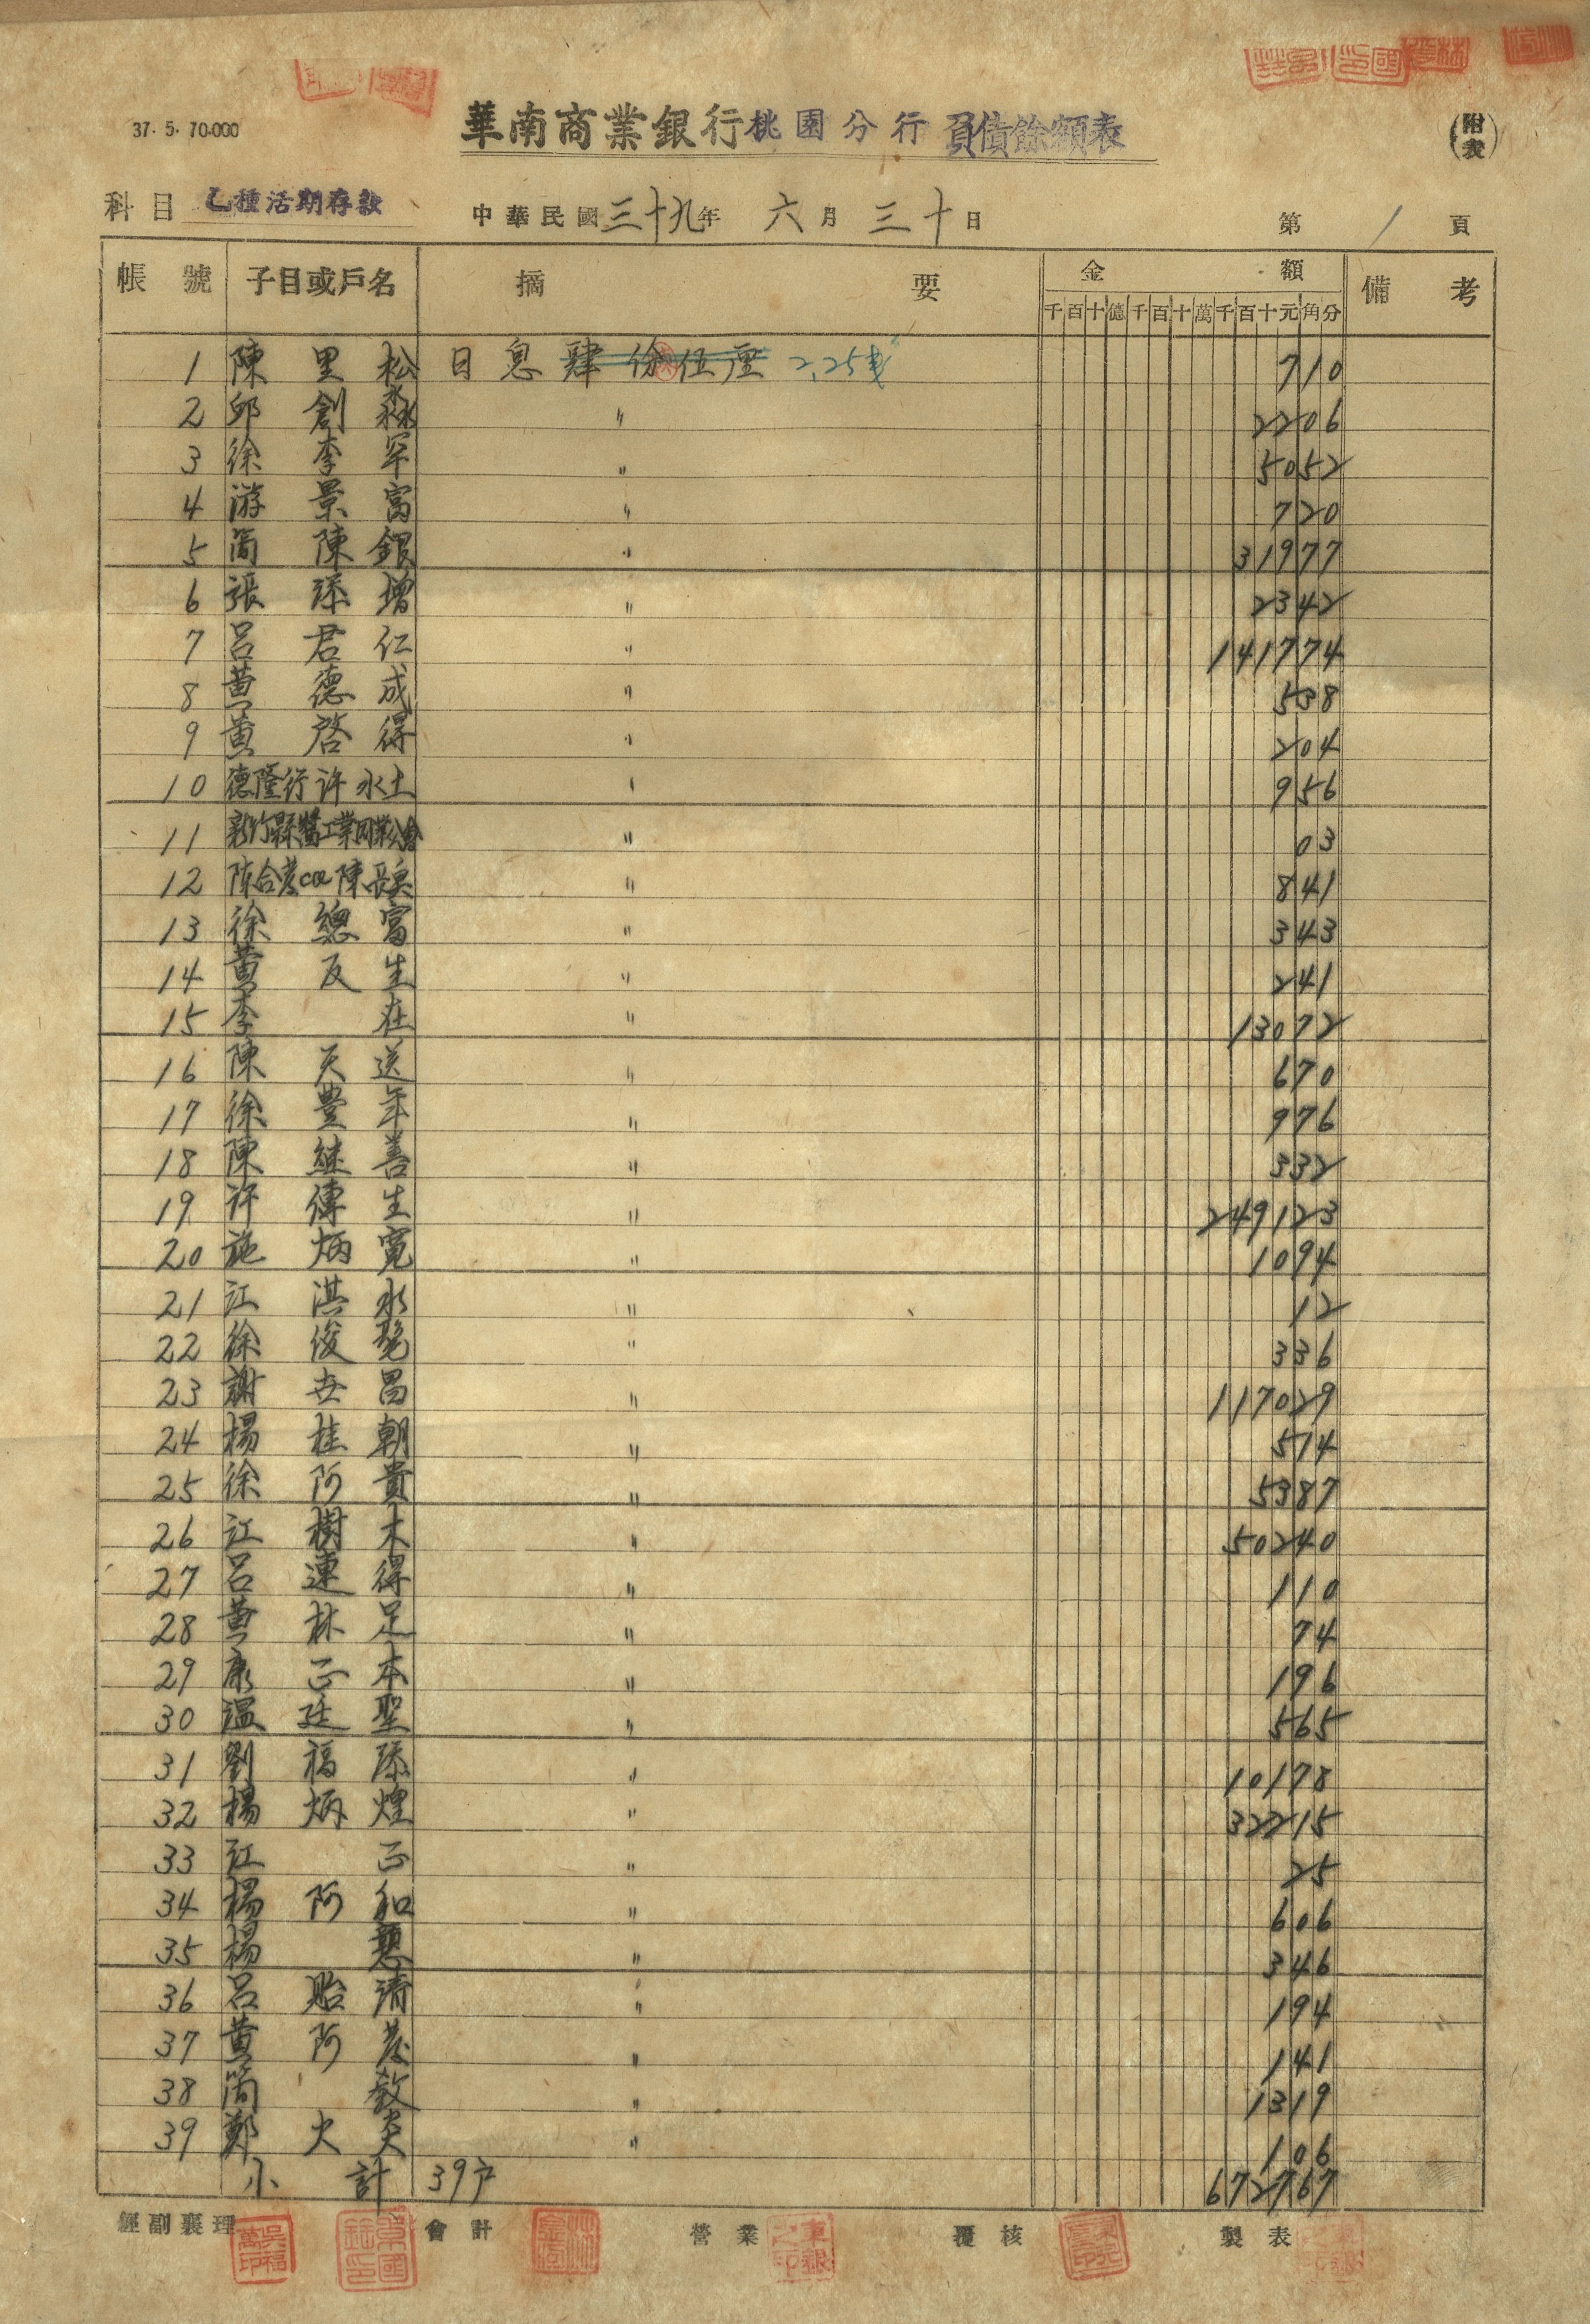 37. 5. 70.000
華南商業銀行桃園分行負債餘額表
(附表)
科目 乙種活期存款 中華民國三十九年 六月 三十日 第 1 頁
帳號 子目或戶名 摘要 金額 備考
千百十億千百十萬千百十元角分
1 陳里松 日息肆分伍厘 2.25 710
2 邱創淼 〃 2206
3 徐李罕 〃 5052
4 游景富 〃 720
5 简陳銀 〃 31977
6 張添增 〃 2342
7 呂君仁 〃 141774
8 黄德成 〃 538
9 黄啓得 〃 204
10 德隆行许水土 〃 956
11 新竹縣醬工業同業公會 〃 03
12 陈合 陳 〃 841
13 徐總富 〃 343
14 黄反生 〃 241
15 李在 〃 13072
16 陳天送 〃 670
17 徐豊年 〃 976
18 陳継善 〃 332
19 许傳生 〃 249123
20 施炳寬 〃 1094
21 江淇水 〃 12
22 徐俊 〃 336
23 謝世昌 〃 117029
24 楊桂朝 〃 514
25 徐阿貴 〃 5387
26 江樹木 〃 50240
27 呂連得 〃 110
28 黄林足 〃 74
29 康正本 〃 196
30 温廷聖 〃 565
31 劉福添 〃 10178
32 楊炳煌 〃 32215
33 江正 〃 25
34 楊阿和 〃 606
35 楊 〃 346
36 呂貽清 〃 194
37 黄阿 〃 141
38 简教 〃 1319
39 鄭火炎 〃 106
小計 39户 672767
經副襄理 會計 營業 覆核 製表